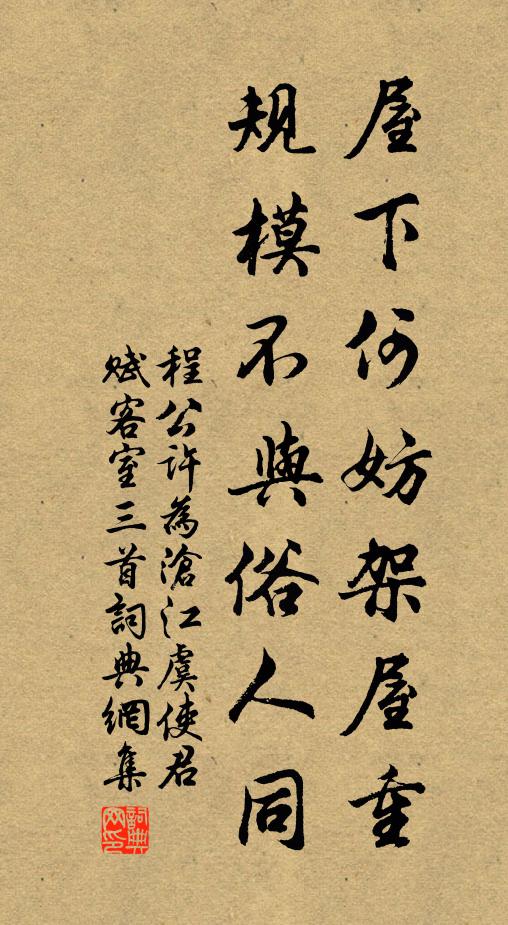 屋下何妨架屋重
規模不與俗人同
程公許為滄江虞使君
賦客室三首詞典網集
詞典网印